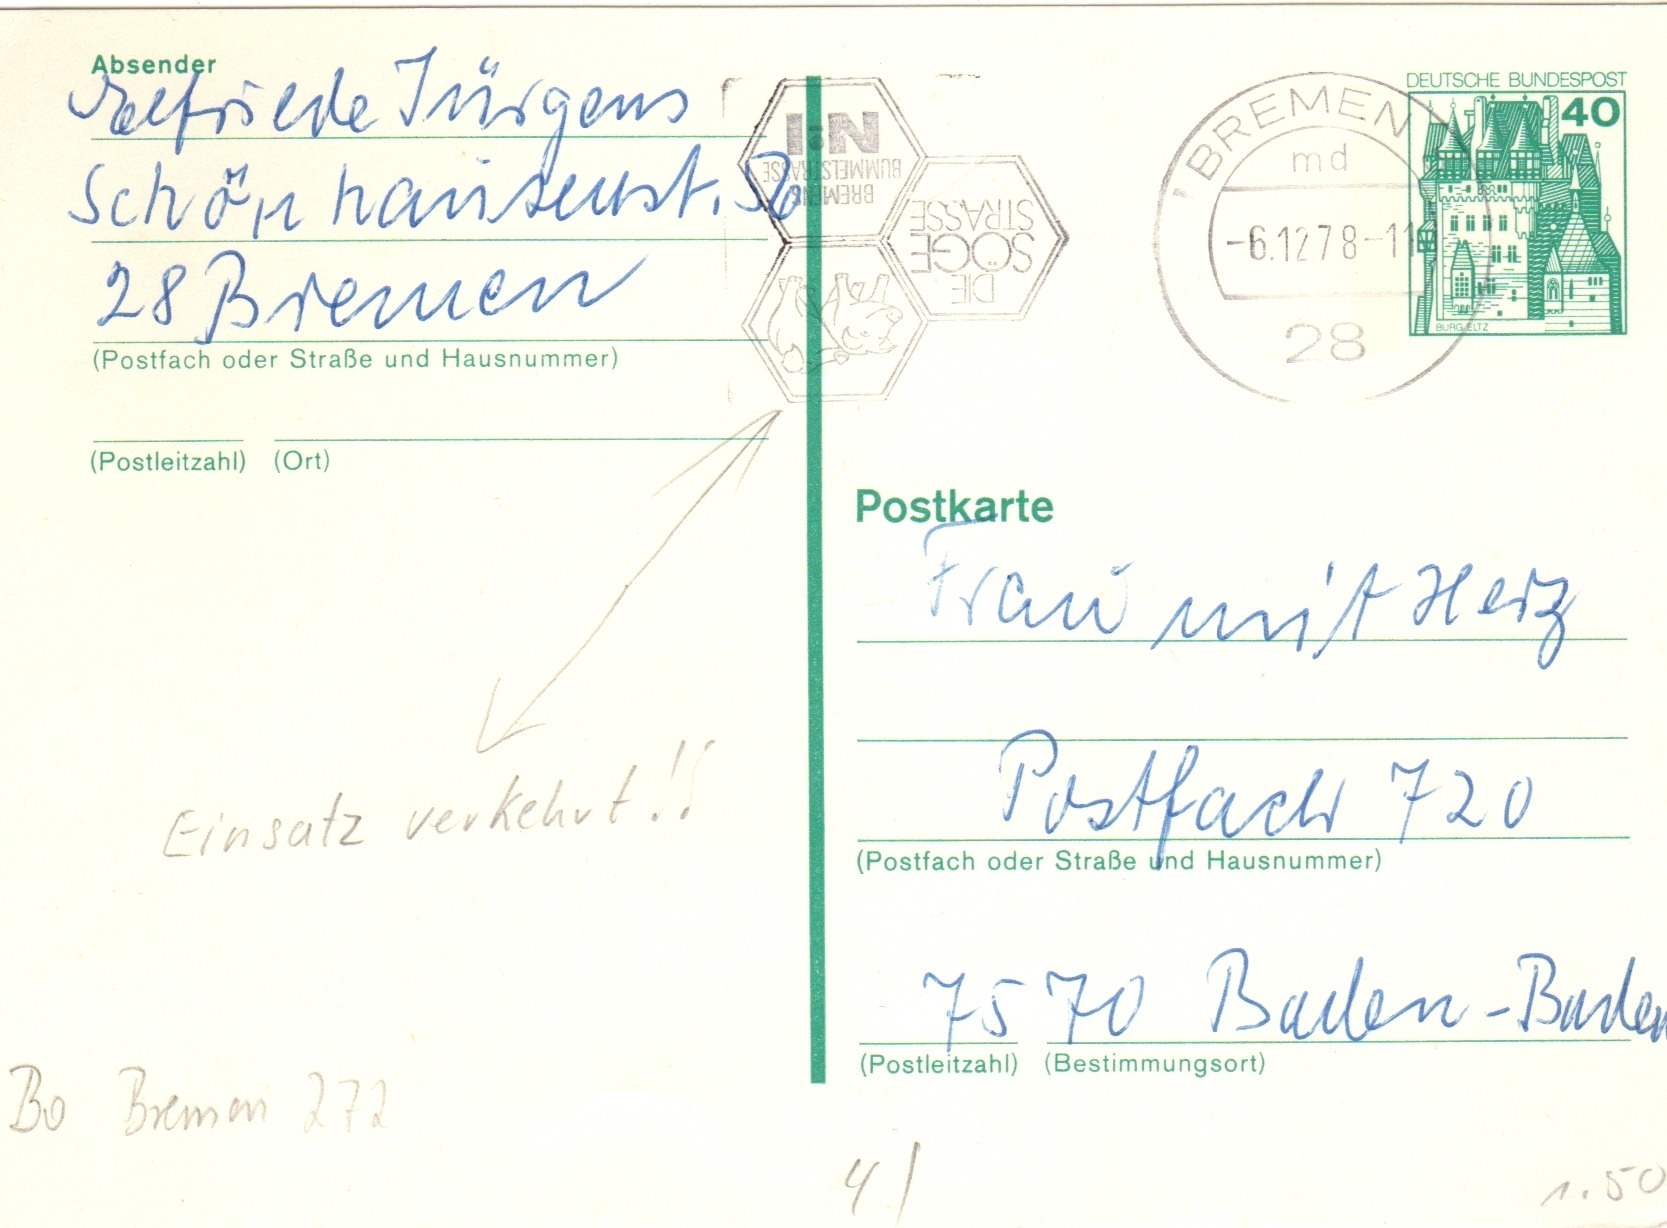 Absender
Elfriede Jürgens
Schönhausenst. 30
28 Bremen
(Postfach oder Straße und Hausnummer)
(Postleitzahl) (Ort)
DIE
SÖGE
STRASSE
BREMENS
BUMMELSTRASSE
BREMEN
md
-6.12.78-11
28
DEUTSCHE BUNDESPOST
40
BURG ELTZ
Postkarte
Frau mit Herz
Postfach 720
(Postfach oder Straße und Hausnummer)
7570 Baden-Baden
(Postleitzahl) (Bestimmungsort)
Einsatz verkehrt!!
Bo Bremen 272
4/
1.50